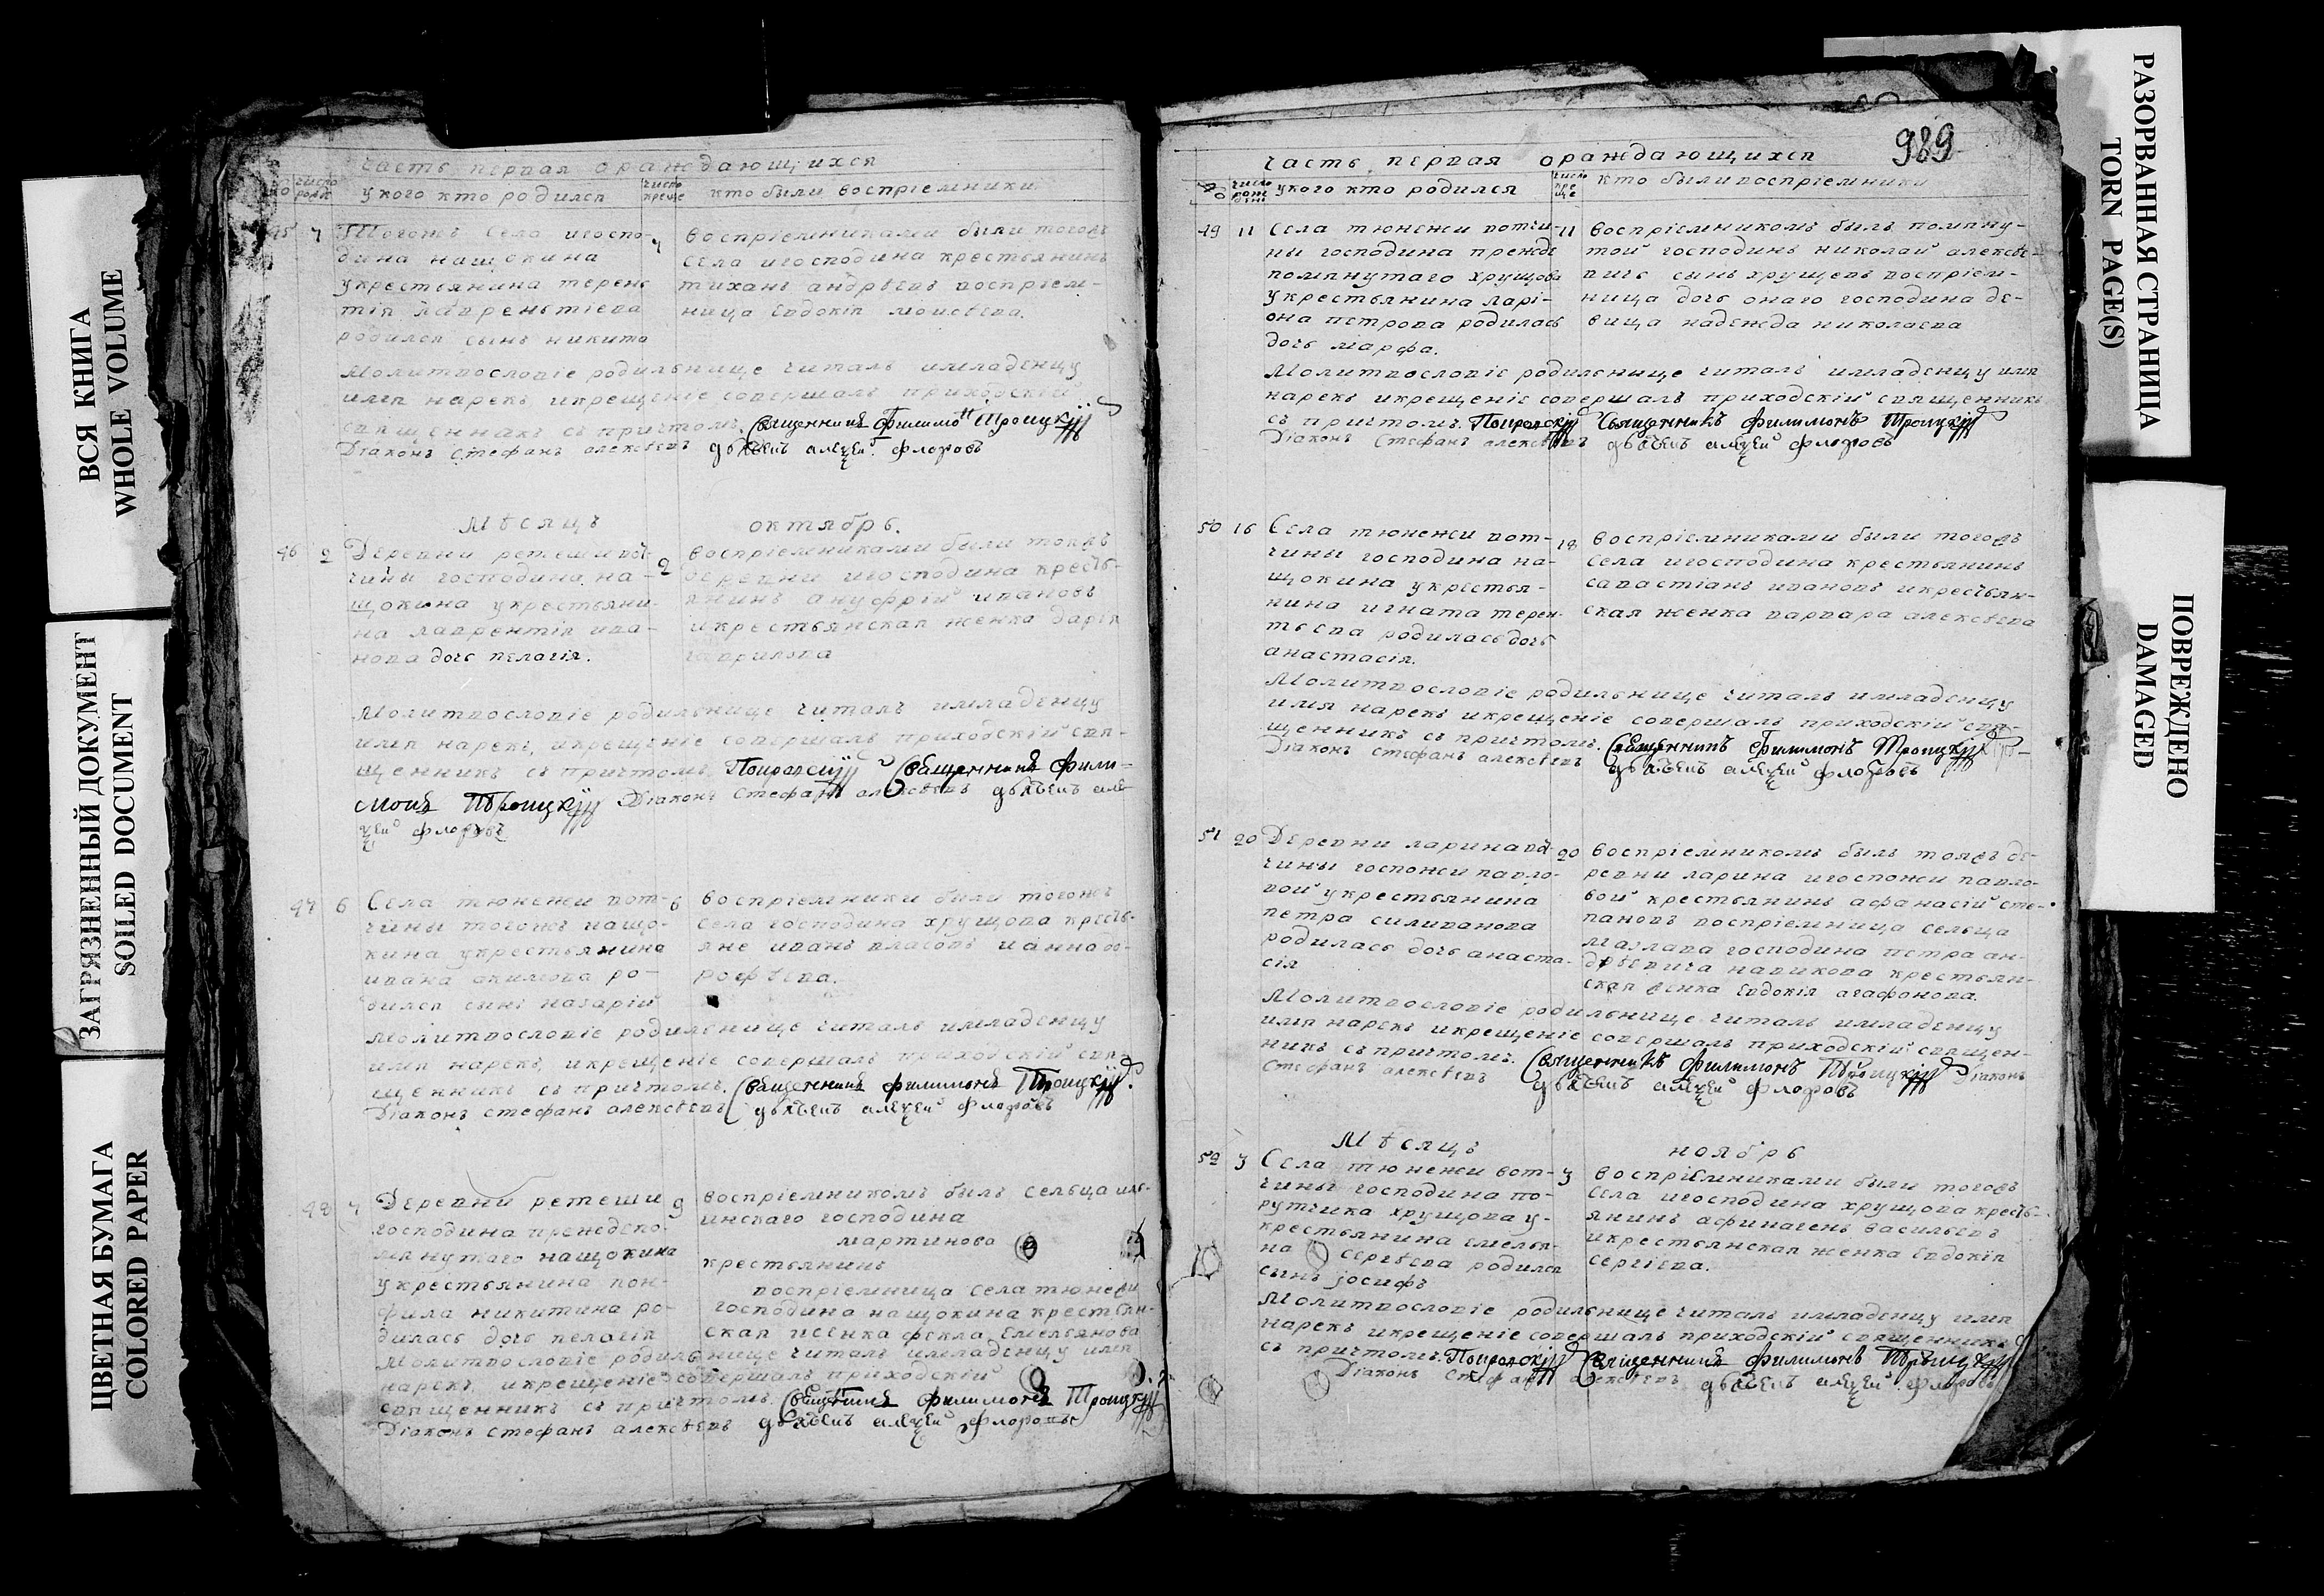 ВСЯ КНИГА
WHOLE VOLUME
ЗАГРЯЗНЕННЫЙ ДОКУМЕНТ
SOILED DOCUMENT
ЦВЕТНАЯ БУМАГА
COLORED PAPER
часть первая о раждающихся
число рожд
у кого кто родился
число креще
кто были воспріемники
45 7
Тогожъ села и госпо-
дина нащокина
у крестьянина терень
тія лаврентіева
родился сынъ никита
7
воспріемниками были тогожъ
села и господина крестьянинъ
тиханъ андрѣевъ воспріем-
ница Евдокія моисѣева.
Молитвословіе родильнице читалъ и младенцу
имя нарекъ, и крещеніе совершалъ приходскій
священникъ съ причтомъ. Священникъ Филимонъ Троицкій
Діаконъ Стефанъ алексѣевъ дьячекъ алеѯей флоровъ
Мѣсяцъ октябрь.
46 2
Деревни ретеши вот-
чины господина на-
щокина у крестьяни-
на лаврентія ива-
нова дочь пелагія.
2
воспріемниками были тояжъ
деревни и господина кресть-
янинъ ануфрій ивановъ
и крестьянская женка дарія
гаврилова
Молитвословіе родильнице читалъ и младенцу
имя нарекъ, и крещеніе совершалъ приходскій свя-
щенникъ съ причтомъ, Покровскій Священникъ Фили-
монъ Троицкій Діаконъ Стефанъ алексѣевъ дьячекъ але-
ѯей флоровъ
47 6
Села тюнежи вот-
чины тогожъ нащо-
кина у крестьянина
ивана акимова ро-
дился сынъ назарій
6
воспріемники были тогожъ
села господина хрущова кресть-
яне иванъ власовъ и анна до-
рофѣева.
Молитвословіе родильнице читалъ и младенцу
имя нарекъ, и крещеніе совершалъ приходскій свя-
щенникъ съ причтомъ. Священникъ Филимонъ Троицкій.
Діаконъ стефанъ алексѣевъ дьячекъ алеѯей флоровъ
48 7
Деревни ретеши
господина прежде по-
мянутаго нащокина
у крестьянина пан-
фила никитина ро-
дилась дочь пелагія
9
воспріемникомъ былъ сельца иль-
инскаго господина
мартинова
крестьянинъ
воспріемница села тюнежи
господина нащокина крестьян-
ская женка фекла Емельянова
Молитвословіе родильнице читалъ и младенцу имя
нарекъ, и крещеніе совершалъ приходскій
священникъ съ причтомъ. Священникъ Филимонъ Троицкій
Діаконъ стефанъ алексѣевъ дьячекъ алеѯей флоровъ
989
часть первая о раждающихся
число рож дені
у кого кто родился
число кре ще
кто были воспріемники
49 11
Села тюнежи вотчи-
ны господина прежде
помянутаго хрущова
у крестьянина ларі-
она петрова родилась
дочь марфа.
11
воспріемникомъ былъ помяну-
той господинъ николай алексѣе-
вичь сынъ хрущевъ воспріем-
ница дочь онаго господина де-
вица надежда николаева
Молитвословіе родильнице читалъ и младенцу имя
нарекъ и крещеніе совершалъ приходскій священникъ
съ причтомъ. Покровскій Священникъ Филимонъ Троицкій
Діаконъ Стефанъ алексѣевъ дьячекъ алеѯей флоровъ
50 16
Села тюнежи вот-
чины господина на-
щокина у крестья-
нина игната терен-
тьева родилась дочь
анастасія.
18
воспріемниками были тогожъ
села и господина крестьянинъ
савастіанъ ивановъ и крестьян-
ская женка варвара алексѣева
Молитвословіе родильнице читалъ и младенцу
имя нарекъ и крещеніе совершалъ приходскій свя-
щенникъ съ причтомъ. Священникъ Филимонъ Троицкій
Діаконъ стефанъ алексѣевъ дьячекъ алеѯей флоровъ
51 20
Деревни ларина вот-
чины госпожи павло-
вой у крестьянина
петра силиванова
родилась дочь анаста-
сія
20
воспріемникомъ былъ тояжъ де-
ревни ларина и госпожи павло-
вой крестьянинъ афанасій сте-
пановъ воспріемница сельца
мазлава господина петра ан-
дрѣевича навикова крестьян-
ская женка Евдокія агафонова.
Молитвословіе родильнице читалъ и младенцу
имя нарекъ и крещеніе совершалъ приходскій священ-
никъ съ причтомъ. Священникъ Филимонъ Троицкій Діаконъ
стефанъ алексѣевъ дьячекъ алеѯей флоровъ
Мѣсяцъ ноябрь
52 3
Села тюнежи вот-
чины господина по-
рутчика хрущова у
крестьянина емелья-
на сергѣева родился
сынъ іосифъ
3
воспріемниками были тогожъ
села и господина хрущова кресть-
янинъ афиногенъ васильевъ
и крестьянская женка Евдокія
сергіева.
Молитвословіе родильнице читалъ и младенцу имя
нарекъ и крещеніе совершалъ приходскій священникъ
съ причтомъ. Покровскій Священникъ Филимонъ Троицкій
Діаконъ Стефанъ алексѣевъ дьячекъ алеѯей флоровъ
РАЗОРВАННАЯ СТРАНИЦА
TORN PAGE(S)
ПОВРЕЖДЕНО
DAMAGED